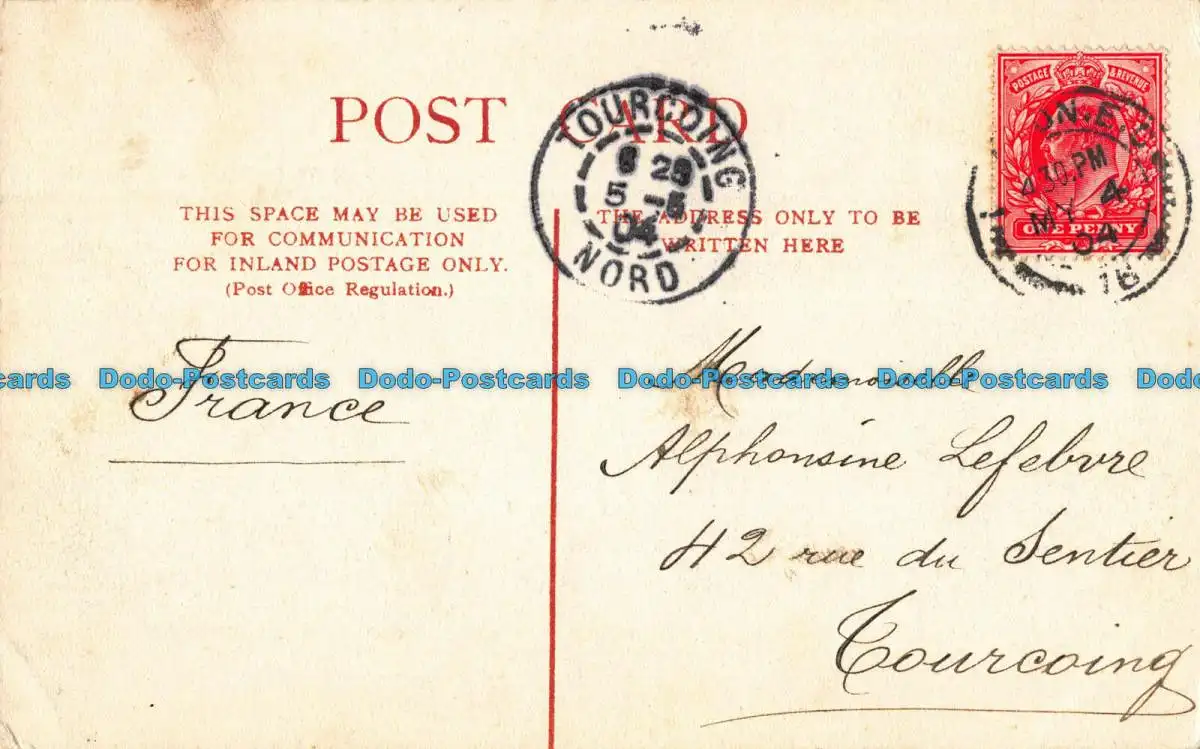 POST CARD
TOURCOING
8 25
5 -5
04
NORD
POSTAGE & REVENUE
ONE PENNY
30.PM
MY 4
04
THIS SPACE MAY BE USED
FOR COMMUNICATION
FOR INLAND POSTAGE ONLY.
(Post Office Regulation.)
THE ADDRESS ONLY TO BE
WRITTEN HERE
France
Mademoiselle
Alphonsine Lefebvre
42 rue du Sentier
Tourcoing
Dodo-Postcards Dodo-Postcards Dodo-Postcards Dodo-Postcards